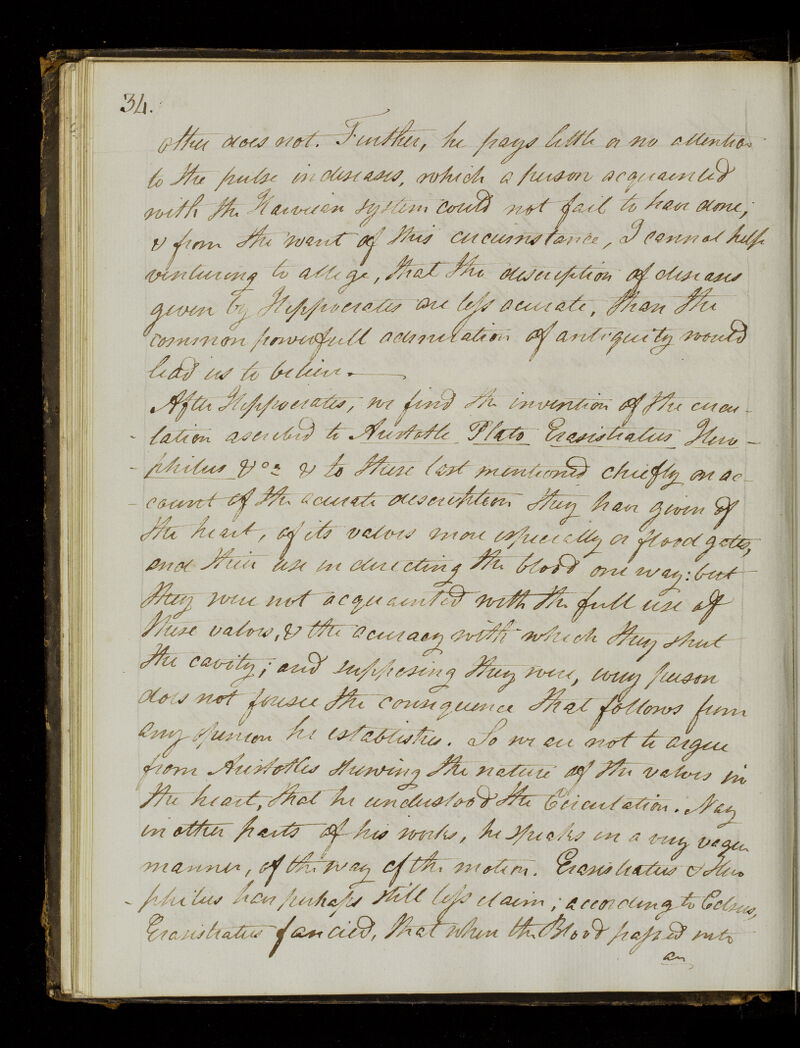 34.
other does not. Further, he pays little or no attention
to the pulse in diseases, which a person acquainted
with the Harveian system could not fail to have done;
& from the want of this circumstance, I cannot help
venturing to allege, that the description of diseases
given by Hippocrates are less acurate, than the
common powerfull admiration of antiquity would
lead us to believe.—
After Hippocrates, we find the invention of the circu-
lation ascribed to Aristotle Plato Erasistratus Hero-
philus &ca & to these last mentioned chiefly on ac-
count of the acurate description they have given of
the heart, of its valvs more especially or flood gates,
and their use in directing the blood one way: but
they were not acquainted with the full use of
these valvs, & the acuracy with which they shut
the cavity; and supposing they were, every person
does not foresee the consequence that follows from
any opinion he establishes. So we are not to argue
from Aristotles shewing the nature of the valves in
the heart, that he understood the Circulation. Nay
in other parts of his works, he speaks in a very vague
manner, of the way of the motion. Erasistratus & Hero
philus have perhaps still less claim; according to Celsus,
Erasistratus fancied, that when the Blood passed into
an